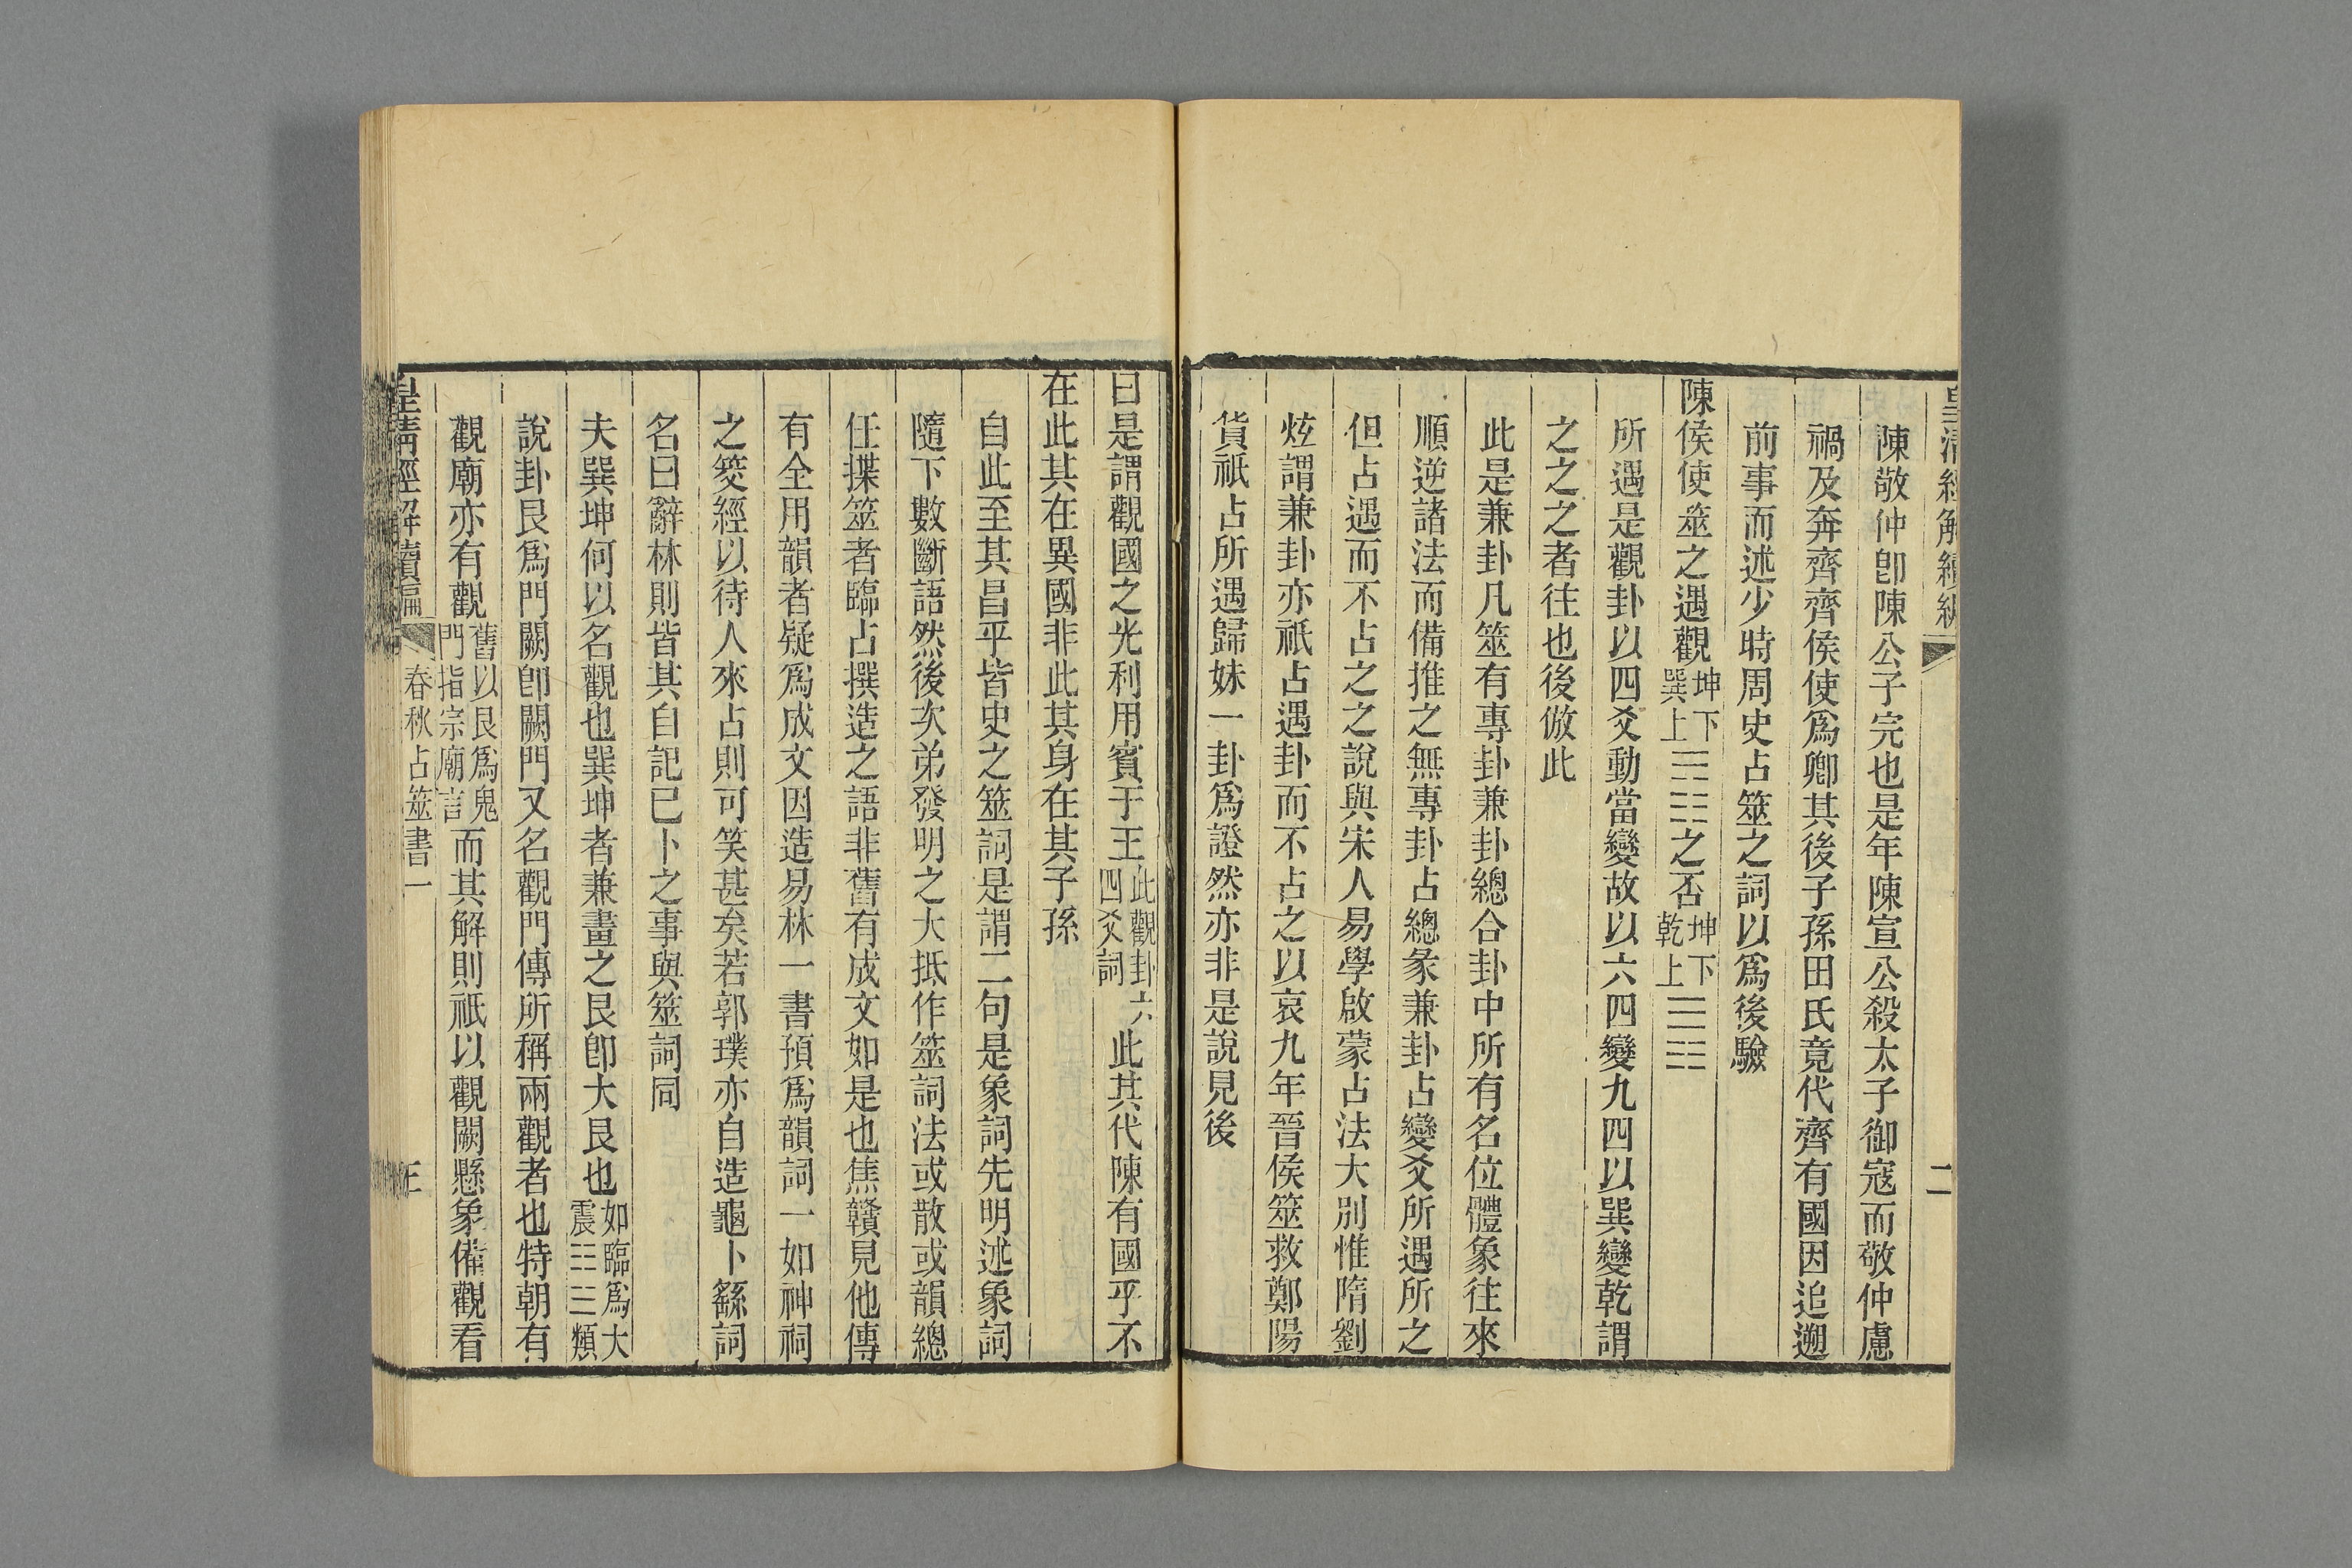 皇清經解續編 二
陳敬仲卽陳公子完也是年陳宣公殺太子御寇而敬仲慮
禍及奔齊齊侯使爲卿其後子孫田氏竟代齊有國因追遡
前事而述少時周史占筮之詞以爲後驗
陳侯使筮之遇觀坤下巽上☴☷之否坤下乾上☰☷
所遇是觀卦以四爻動當變故以六四變九四以巽變乾謂
之之之者往也後倣此
此是兼卦凡筮有專卦兼卦總合卦中所有名位體象往來
順逆諸法而備推之無專卦占總彖兼卦占變爻所遇所之
但占遇而不占之之說與宋人易學啟蒙占法大別惟隋劉
炫謂兼卦亦祇占遇卦而不占之以哀九年晉侯筮救鄭陽
貨祇占所遇歸妹一卦爲證然亦非是說見後
曰是謂觀國之光利用賓于王此觀卦六四爻詞此其代陳有國乎不
在此其在異國非此其身在其子孫
自此至其昌乎皆史之筮詞是謂二句是象詞先明述象詞
隨下數斷語然後次弟發明之大抵作筮詞法或散或韻總
任揲筮者臨占撰造之語非舊有成文如是也焦贛見他傳
有全用韻者疑爲成文因造易林一書預爲韻詞一如神祠
之筊經以待人來占則可笑甚矣若郭璞亦自造龜卜繇詞
名曰辭林則皆其自記已卜之事與筮詞同
夫巽坤何以名觀也巽坤者兼畫之艮卽大艮也如臨爲大震☷☱類
說卦艮爲門闕卽闕門又名觀門傳所稱兩觀者也特朝有
觀廟亦有觀舊以艮爲鬼門指宗廟言而其解則祇以觀闕懸象備觀看
皇清經解續編 春秋占筮書一 三